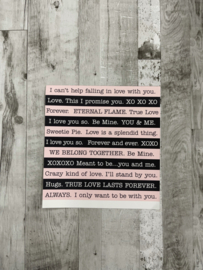 I can't help falling in love with you.
Love. This I promise you. XO XO XO
Forever. ETERNAL FLAME. True Love
I love you so. Be Mine. YOU & ME.
Sweetie Pie. Love is a splendid thing.
I love you so. Forever and ever. XOXO
WE BELONG TOGETHER. Be Mine.
XOXOXO Meant to be...you and me.
Crazy kind of love. I'll stand by you.
Hugs. TRUE LOVE LASTS FOREVER.
ALWAYS. I only want to be with you.